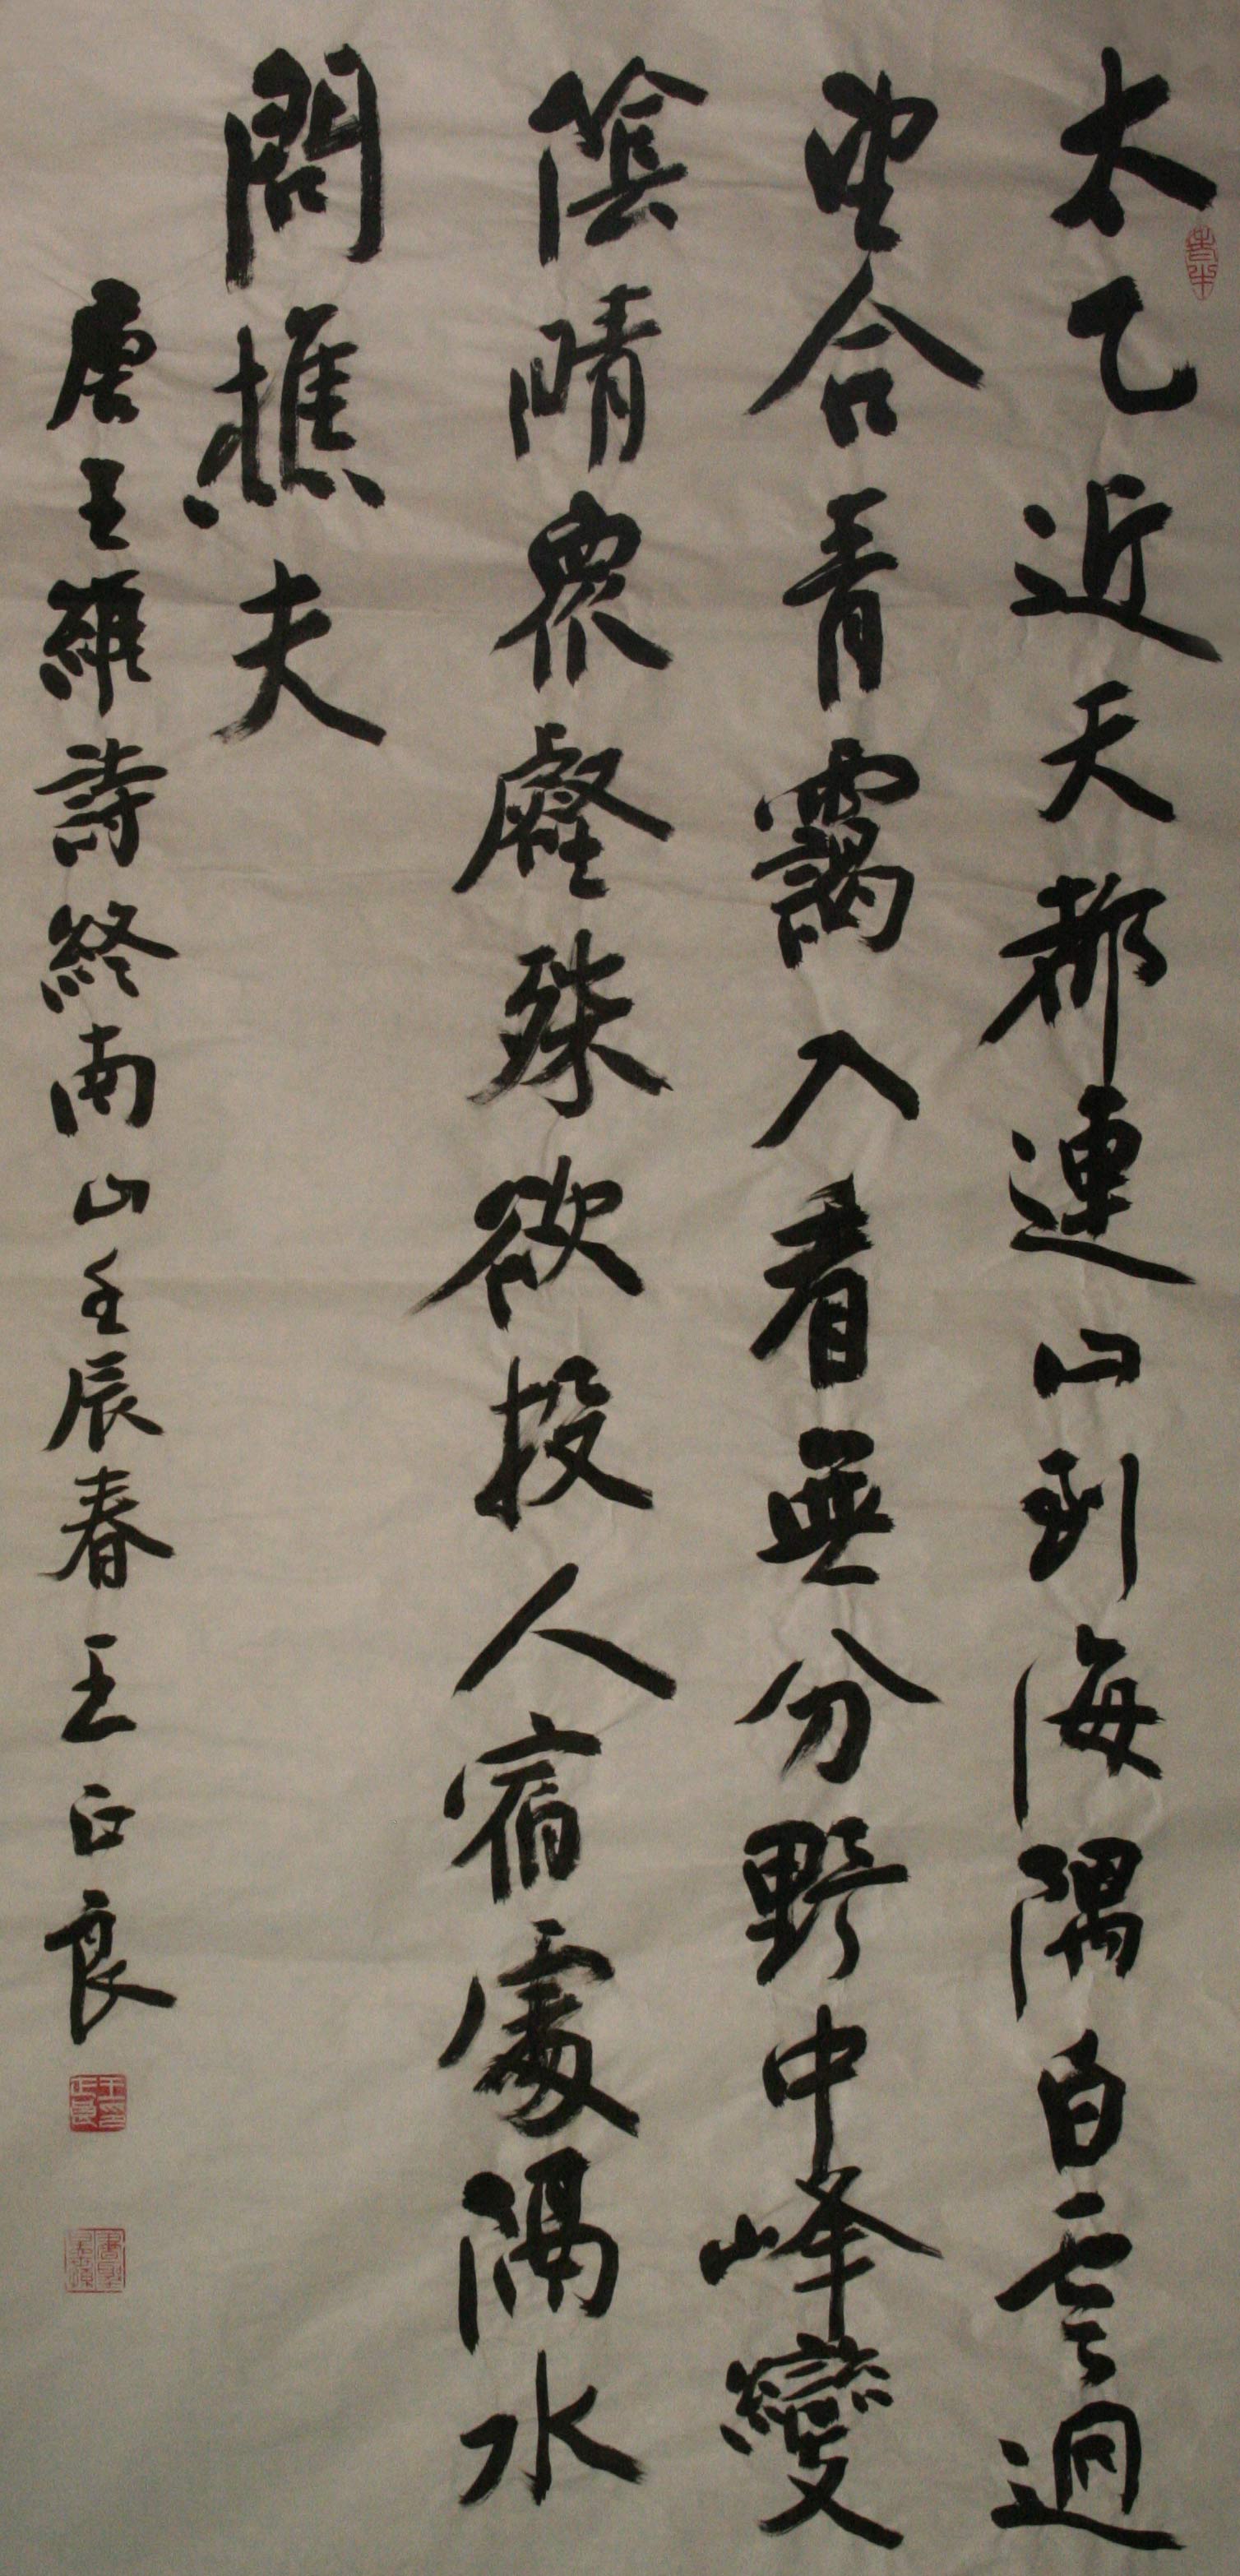 太乙近天都連山到海隅白雲迴
望合青靄入看無分野中峰變
陰晴衆壑殊欲投人宿處隔水
問樵夫
唐王維詩終南山壬辰春王正良